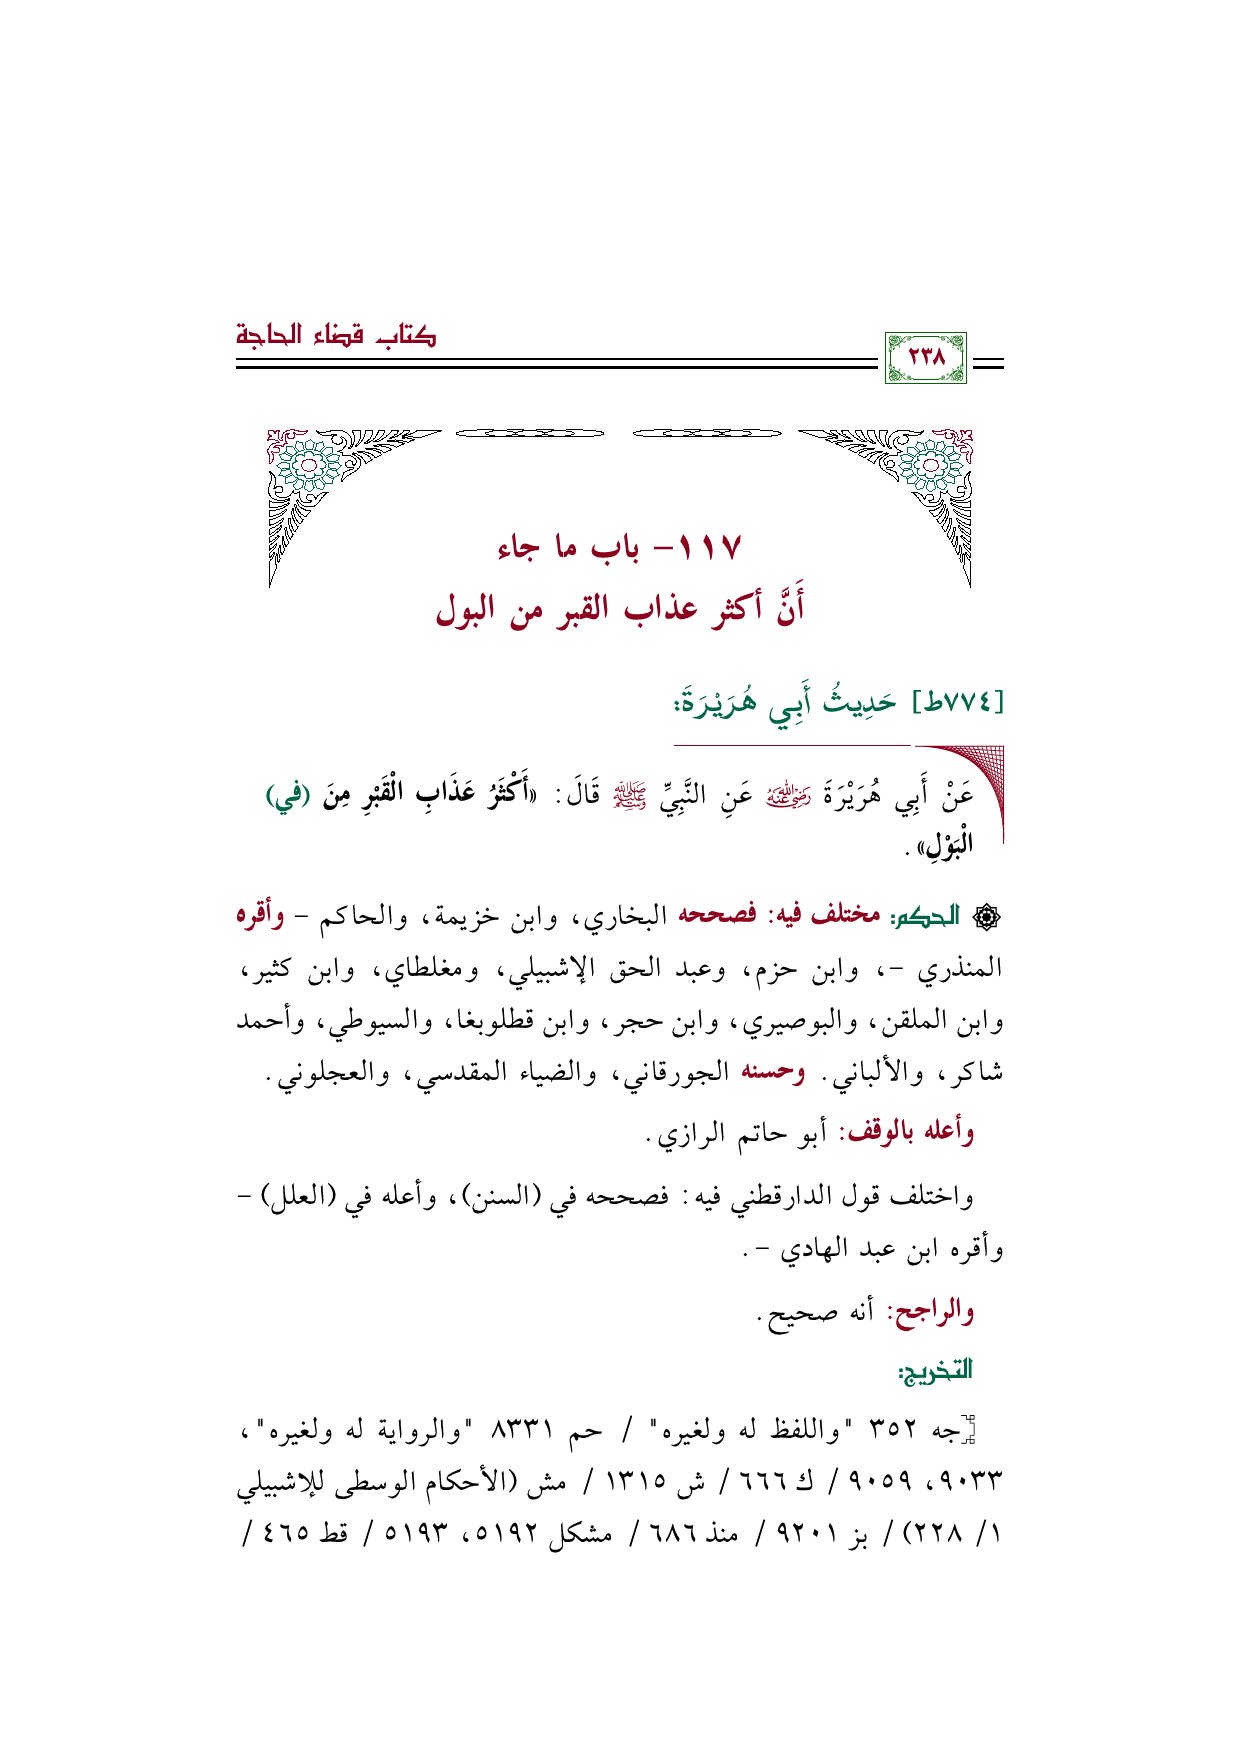 كتاب قضاء الحاجة
٢٣٨
١١٧- باب ما جاء
أَنَّ أكثر عذاب القبر من البول
[٧٧٤ط] حَدِيثُ أَبِي هُرَيْرَةَ:
عَنْ أَبِي هُرَيْرَةَ رضي الله عنه عَنِ النَّبِيِّ ﷺ قَالَ: «أَكْثَرُ عَذَابِ الْقَبْرِ مِنَ (في)
الْبَوْلِ».
الحكم: مختلف فيه: فصححه البخاري، وابن خزيمة، والحاكم - وأقره
المنذري -، وابن حزم، وعبد الحق الإشبيلي، ومغلطاي، وابن كثير،
وابن الملقن، والبوصيري، وابن حجر، وابن قطلوبغا، والسيوطي، وأحمد
شاكر، والألباني. وحسنه الجورقاني، والضياء المقدسي، والعجلوني.
وأعله بالوقف: أبو حاتم الرازي.
واختلف قول الدارقطني فيه: فصححه في (السنن)، وأعله في (العلل) -
وأقره ابن عبد الهادي -.
والراجح: أنه صحيح.
التخريج:
[جه ٣٥٢ "واللفظ له ولغيره" / حم ٨٣٣١ "والرواية له ولغيره"،
٩٠٣٣، ٩٠٥٩ / ك ٦٦٦ / ش ١٣١٥ / مش (الأحكام الوسطى للإشبيلي
١/ ٢٢٨) / بز ٩٢٠١ / منذ ٦٨٦ / مشكل ٥١٩٢، ٥١٩٣ / قط ٤٦٥ /